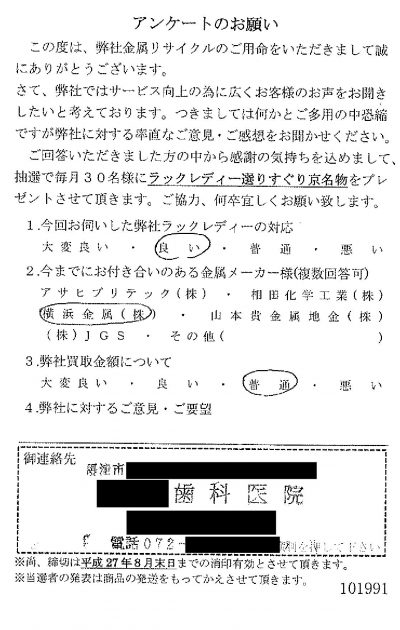 アンケートのお願い
この度は、弊社金属リサイクルのご用命をいただきまして誠
にありがとうございます。
さて、弊社ではサービス向上の為に広くお客様のお声をお聞き
したいと考えております。つきましては何かとご多用の中恐縮
ですが弊社に対する率直なご意見・ご感想をお聞かせください。
ご回答いただきました方の中から感謝の気持ちを込めまして、
抽選で毎月30名様にラックレディー選りすぐり京名物をプレ
ゼントさせて頂きます。ご協力、何卒宜しくお願い致します。
1.今回お伺いした弊社ラックレディーの対応
大変良い ・ 良い ・ 普通 ・ 悪い
2.今までにお付き合いのある金属メーカー様(複数回答可)
アサヒプリテック(株) ・ 相田化学工業(株)
横浜金属(株) ・ 山本貴金属地金(株)
(株)JGS ・ その他( )
3.弊社買取金額について
大変良い ・ 良い ・ 普通 ・ 悪い
4.弊社に対するご意見・ご要望
御連絡先
市
歯科医院
電話072-
を押して下さい
※尚、締切は平成27年8月末日までの消印有効とさせて頂きます。
※当選者の発表は商品の発送をもってかえさせて頂きます。
101991